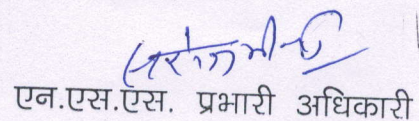 एन.एस.एस. प्रभारी अधिकारी